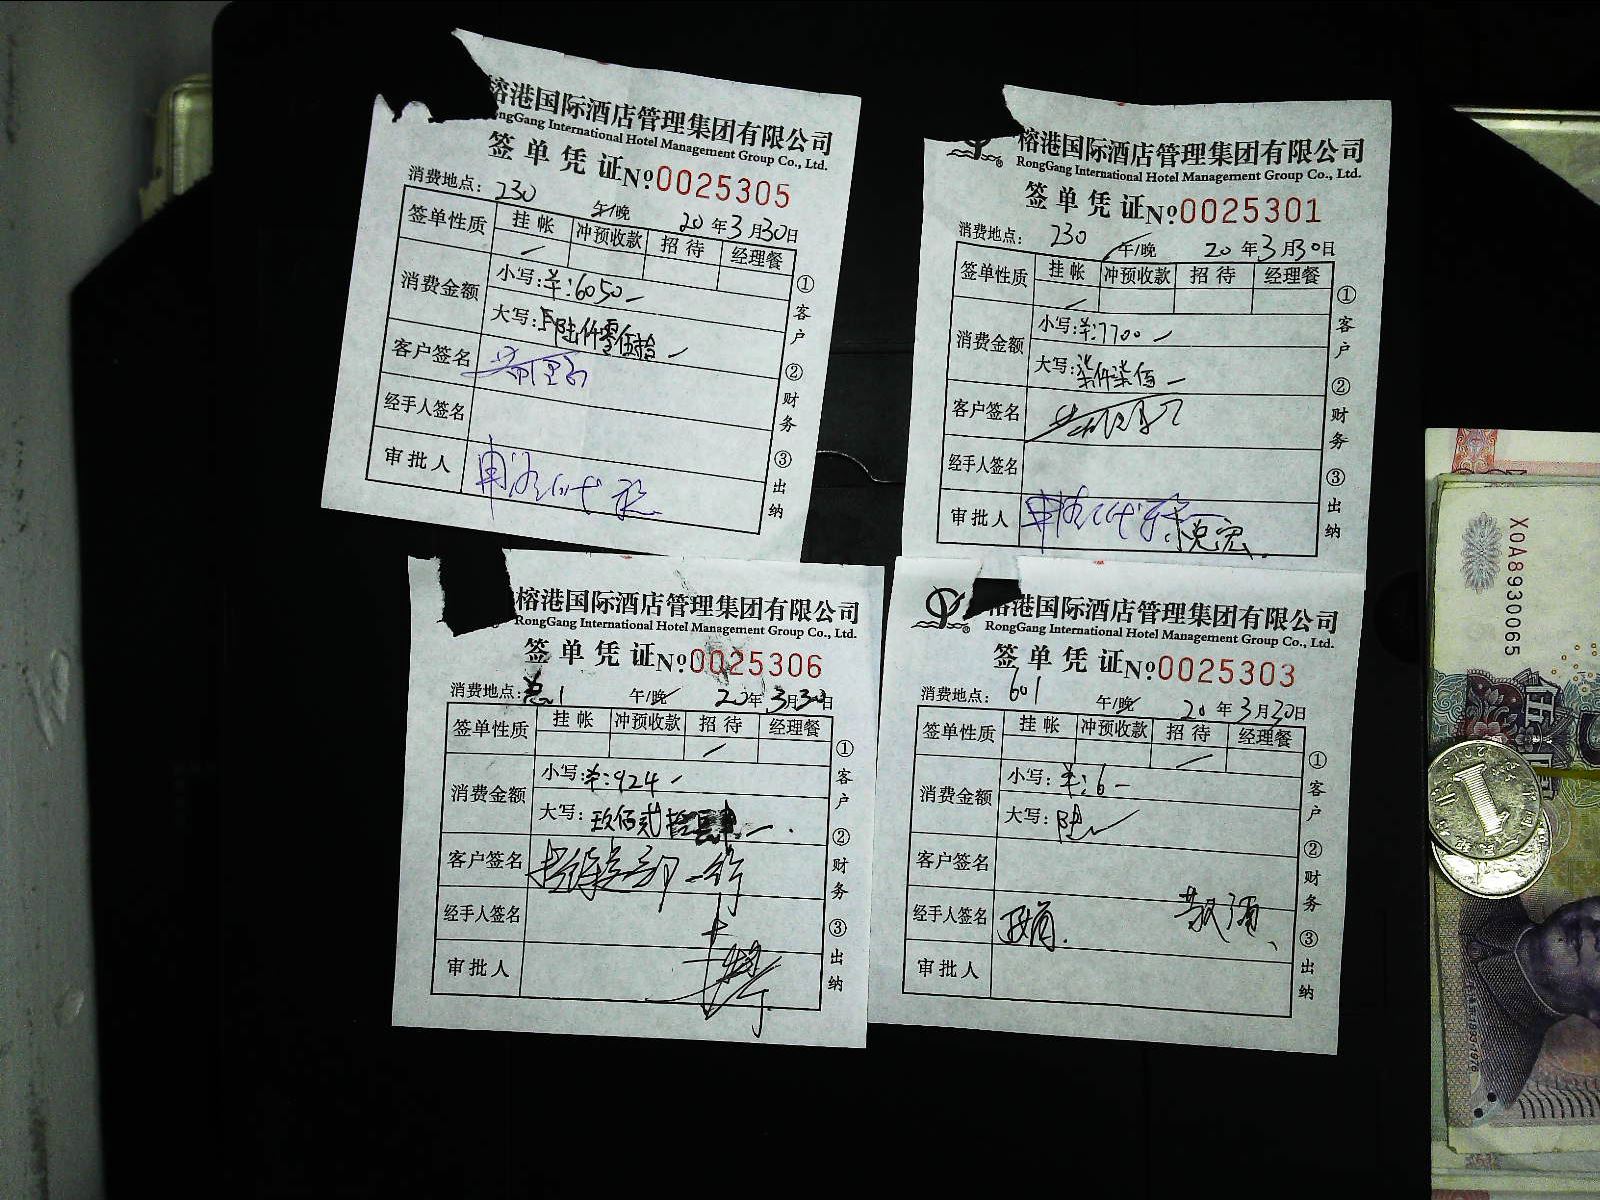 榕港国际酒店管理集团有限公司
ngGang International Hotel Management Group Co., Ltd.
签单凭证 No 0025305
消费地点: 230 午/晚 20年3月30日
签单性质 挂帐 冲预收款 招待 经理餐
消费金额 小写:¥:6050-
大写: 陆仟零伍拾
客户签名
经手人签名
审批人
①客户 ②财务 ③出纳
榕港国际酒店管理集团有限公司
RongGang International Hotel Management Group Co., Ltd.
签单凭证 No 0025301
消费地点: 230 午/晚 20年3月30日
签单性质 挂帐 冲预收款 招待 经理餐
消费金额 小写:¥:7700-
大写:柒仟柒佰-
客户签名
经手人签名
审批人
①客户 ②财务 ③出纳
榕港国际酒店管理集团有限公司
RongGang International Hotel Management Group Co., Ltd.
签单凭证 No 0025306
消费地点: 午/晚 20年3月30日
签单性质 挂帐 冲预收款 招待 经理餐
消费金额 小写:¥:924-
大写:玖佰贰拾肆-
客户签名
经手人签名
审批人
①客户 ②财务 ③出纳
榕港国际酒店管理集团有限公司
RongGang International Hotel Management Group Co., Ltd.
签单凭证 No 0025303
消费地点: 601 午/晚 20年3月30日
签单性质 挂帐 冲预收款 招待 经理餐
消费金额 小写:¥:6-
大写:陆
客户签名
经手人签名
审批人
①客户 ②财务 ③出纳
X0A8930065
1